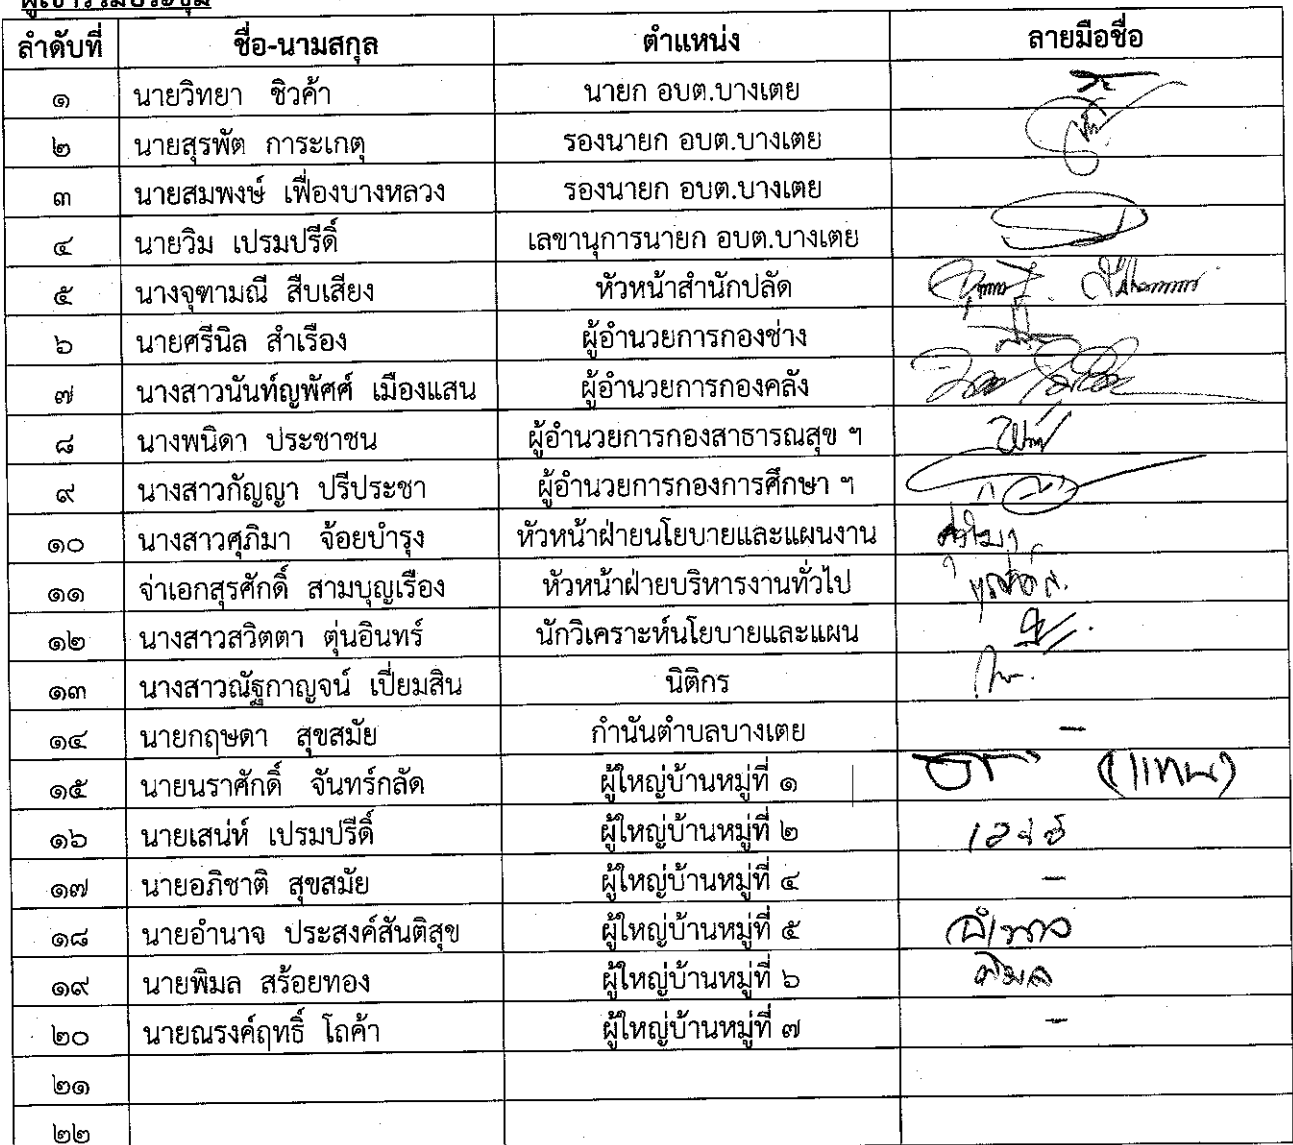 ผู้เข้าร่วมประชุม
ลำดับที่ ชื่อ-นามสกุล ตำแหน่ง ลายมือชื่อ
๑ นายวิทยา ชิวค้า นายก อบต.บางเตย
๒ นายสุรพัต การะเกตุ รองนายก อบต.บางเตย
๓ นายสมพงษ์ เฟื่องบางหลวง รองนายก อบต.บางเตย
๔ นายวิม เปรมปรีดิ์ เลขานุการนายก อบต.บางเตย
๕ นางจุฑามณี สืบเสียง หัวหน้าสำนักปลัด
๖ นายศรีนิล สำเรือง ผู้อำนวยการกองช่าง
๗ นางสาวนันท์ญพัศศ์ เมืองแสน ผู้อำนวยการกองคลัง
๘ นางพนิดา ประชาชน ผู้อำนวยการกองสาธารณสุข ฯ
๙ นางสาวกัญญา ปรีประชา ผู้อำนวยการกองการศึกษา ฯ
๑๐ นางสาวศุภิมา จ้อยบำรุง หัวหน้าฝ่ายนโยบายและแผนงาน
๑๑ จ่าเอกสุรศักดิ์ สามบุญเรือง หัวหน้าฝ่ายบริหารงานทั่วไป
๑๒ นางสาวสวิตตา ตุ่นอินทร์ นักวิเคราะห์นโยบายและแผน
๑๓ นางสาวณัฐกาญจน์ เปี่ยมสิน นิติกร
๑๔ นายกฤษดา สุขสมัย กำนันตำบลบางเตย -
๑๕ นายนราศักดิ์ จันทร์กลัด ผู้ใหญ่บ้านหมู่ที่ ๑ (แทน)
๑๖ นายเสน่ห์ เปรมปรีดิ์ ผู้ใหญ่บ้านหมู่ที่ ๒
๑๗ นายอภิชาติ สุขสมัย ผู้ใหญ่บ้านหมู่ที่ ๔ -
๑๘ นายอำนาจ ประสงค์สันติสุข ผู้ใหญ่บ้านหมู่ที่ ๕ อำนาจ
๑๙ นายพิมล สร้อยทอง ผู้ใหญ่บ้านหมู่ที่ ๖ พิมล
๒๐ นายณรงค์ฤทธิ์ โถค้า ผู้ใหญ่บ้านหมู่ที่ ๗ -
๒๑
๒๒